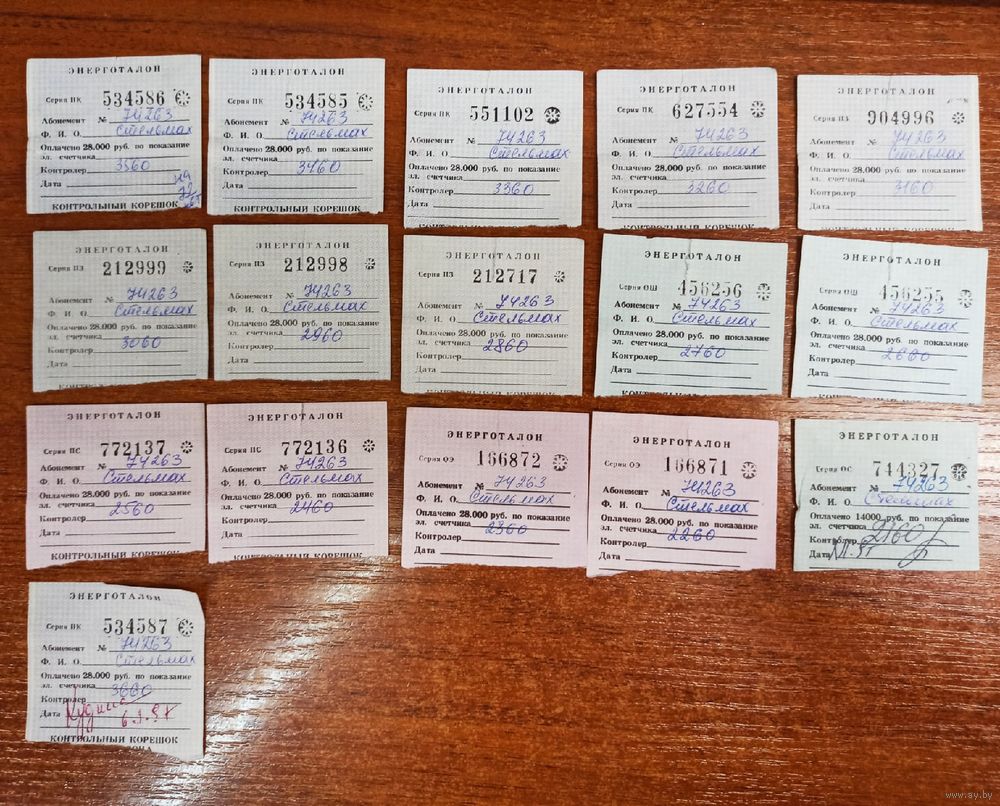 ЭНЕРГОТАЛОН
Серия ПК 534586
Абонемент № 74263
Ф. И. О. Стельмах
Оплачено 28.000 руб. по показание
эл. счетчика 3560
Контролер
Дата
КОНТРОЛЬНЫЙ КОРЕШОК
ЭНЕРГОТАЛОН
Серия ПК 534585
Абонемент № 74263
Ф. И. О. Стельмах
Оплачено 28.000 руб. по показание
эл. счетчика 3460
Контролер
Дата
КОНТРОЛЬНЫЙ КОРЕШОК
ЭНЕРГОТАЛОН
Серия ПК 551102
Абонемент № 74263
Ф. И. О. Стельмах
Оплачено 28.000 руб. по показание
эл. счетчика 3360
Контролер
Дата
КОНТРОЛЬНЫЙ КОРЕШОК
ЭНЕРГОТАЛОН
Серия ПК 627554
Абонемент № 74263
Ф. И. О. Стельмах
Оплачено 28.000 руб. по показание
эл. счетчика 3260
Контролер
Дата
КОНТРОЛЬНЫЙ КОРЕШОК
ЭНЕРГОТАЛОН
Серия 904996
Абонемент № 74263
Ф. И. О. Стельмах
Оплачено 28.000 руб. по показание
эл. счетчика 3160
Контролер
Дата
ЭНЕРГОТАЛОН
Серия ПЗ 212999
Абонемент № 74263
Ф. И. О. Стельмах
Оплачено 28.000 руб. по показание
эл. счетчика 3060
Контролер
Дата
ЭНЕРГОТАЛОН
Серия ПЗ 212998
Абонемент № 74263
Ф. И. О. Стельмах
Оплачено 28.000 руб. по показание
эл. счетчика 2960
Контролер
Дата
ЭНЕРГОТАЛОН
Серия ПЗ 212717
Абонемент № 74263
Ф. И. О. Стельмах
Оплачено 28.000 руб. по показание
эл. счетчика 2860
Контролер
Дата
ЭНЕРГОТАЛОН
Серия ОШ 456256
Абонемент № 74263
Ф. И. О. Стельмах
Оплачено 28.000 руб. по показание
эл. счетчика 2760
Контролер
Дата
ЭНЕРГОТАЛОН
Серия ОШ 456255
Абонемент № 74263
Ф. И. О. Стельмах
Оплачено 28.000 руб. по показание
эл. счетчика 2660
Контролер
Дата
ЭНЕРГОТАЛОН
Серия ПС 772137
Абонемент № 74263
Ф. И. О. Стельмах
Оплачено 28.000 руб. по показание
эл. счетчика 2560
Контролер
Дата
КОНТРОЛЬНЫЙ КОРЕШОК
ЭНЕРГОТАЛОН
Серия ПС 772136
Абонемент № 74263
Ф. И. О. Стельмах
Оплачено 28.000 руб. по показание
эл. счетчика 2460
Контролер
Дата
КОНТРОЛЬНЫЙ КОРЕШОК
ЭНЕРГОТАЛОН
Серия ОЭ 166872
Абонемент № 74263
Ф. И. О. Стельмах
Оплачено 28.000 руб. по показание
эл. счетчика 2360
Контролер
Дата
ЭНЕРГОТАЛОН
Серия ОЭ 166871
Абонемент № 74263
Ф. И. О. Стельмах
Оплачено 28.000 руб. по показание
эл. счетчика 2260
Контролер
Дата
ЭНЕРГОТАЛОН
Серия ОС 744327
Абонемент № 74263
Ф. И. О. Стельмах
Оплачено 14000 руб. по показание
эл. счетчика 2160
Контролер
Дата
ЭНЕРГОТАЛОН
Серия ПК 534587
Абонемент № 74263
Ф. И. О. Стельмах
Оплачено 28.000 руб. по показание
эл. счетчика 3660
Контролер
Дата 6.1.97
КОНТРОЛЬНЫЙ КОРЕШОК
www.ay.by